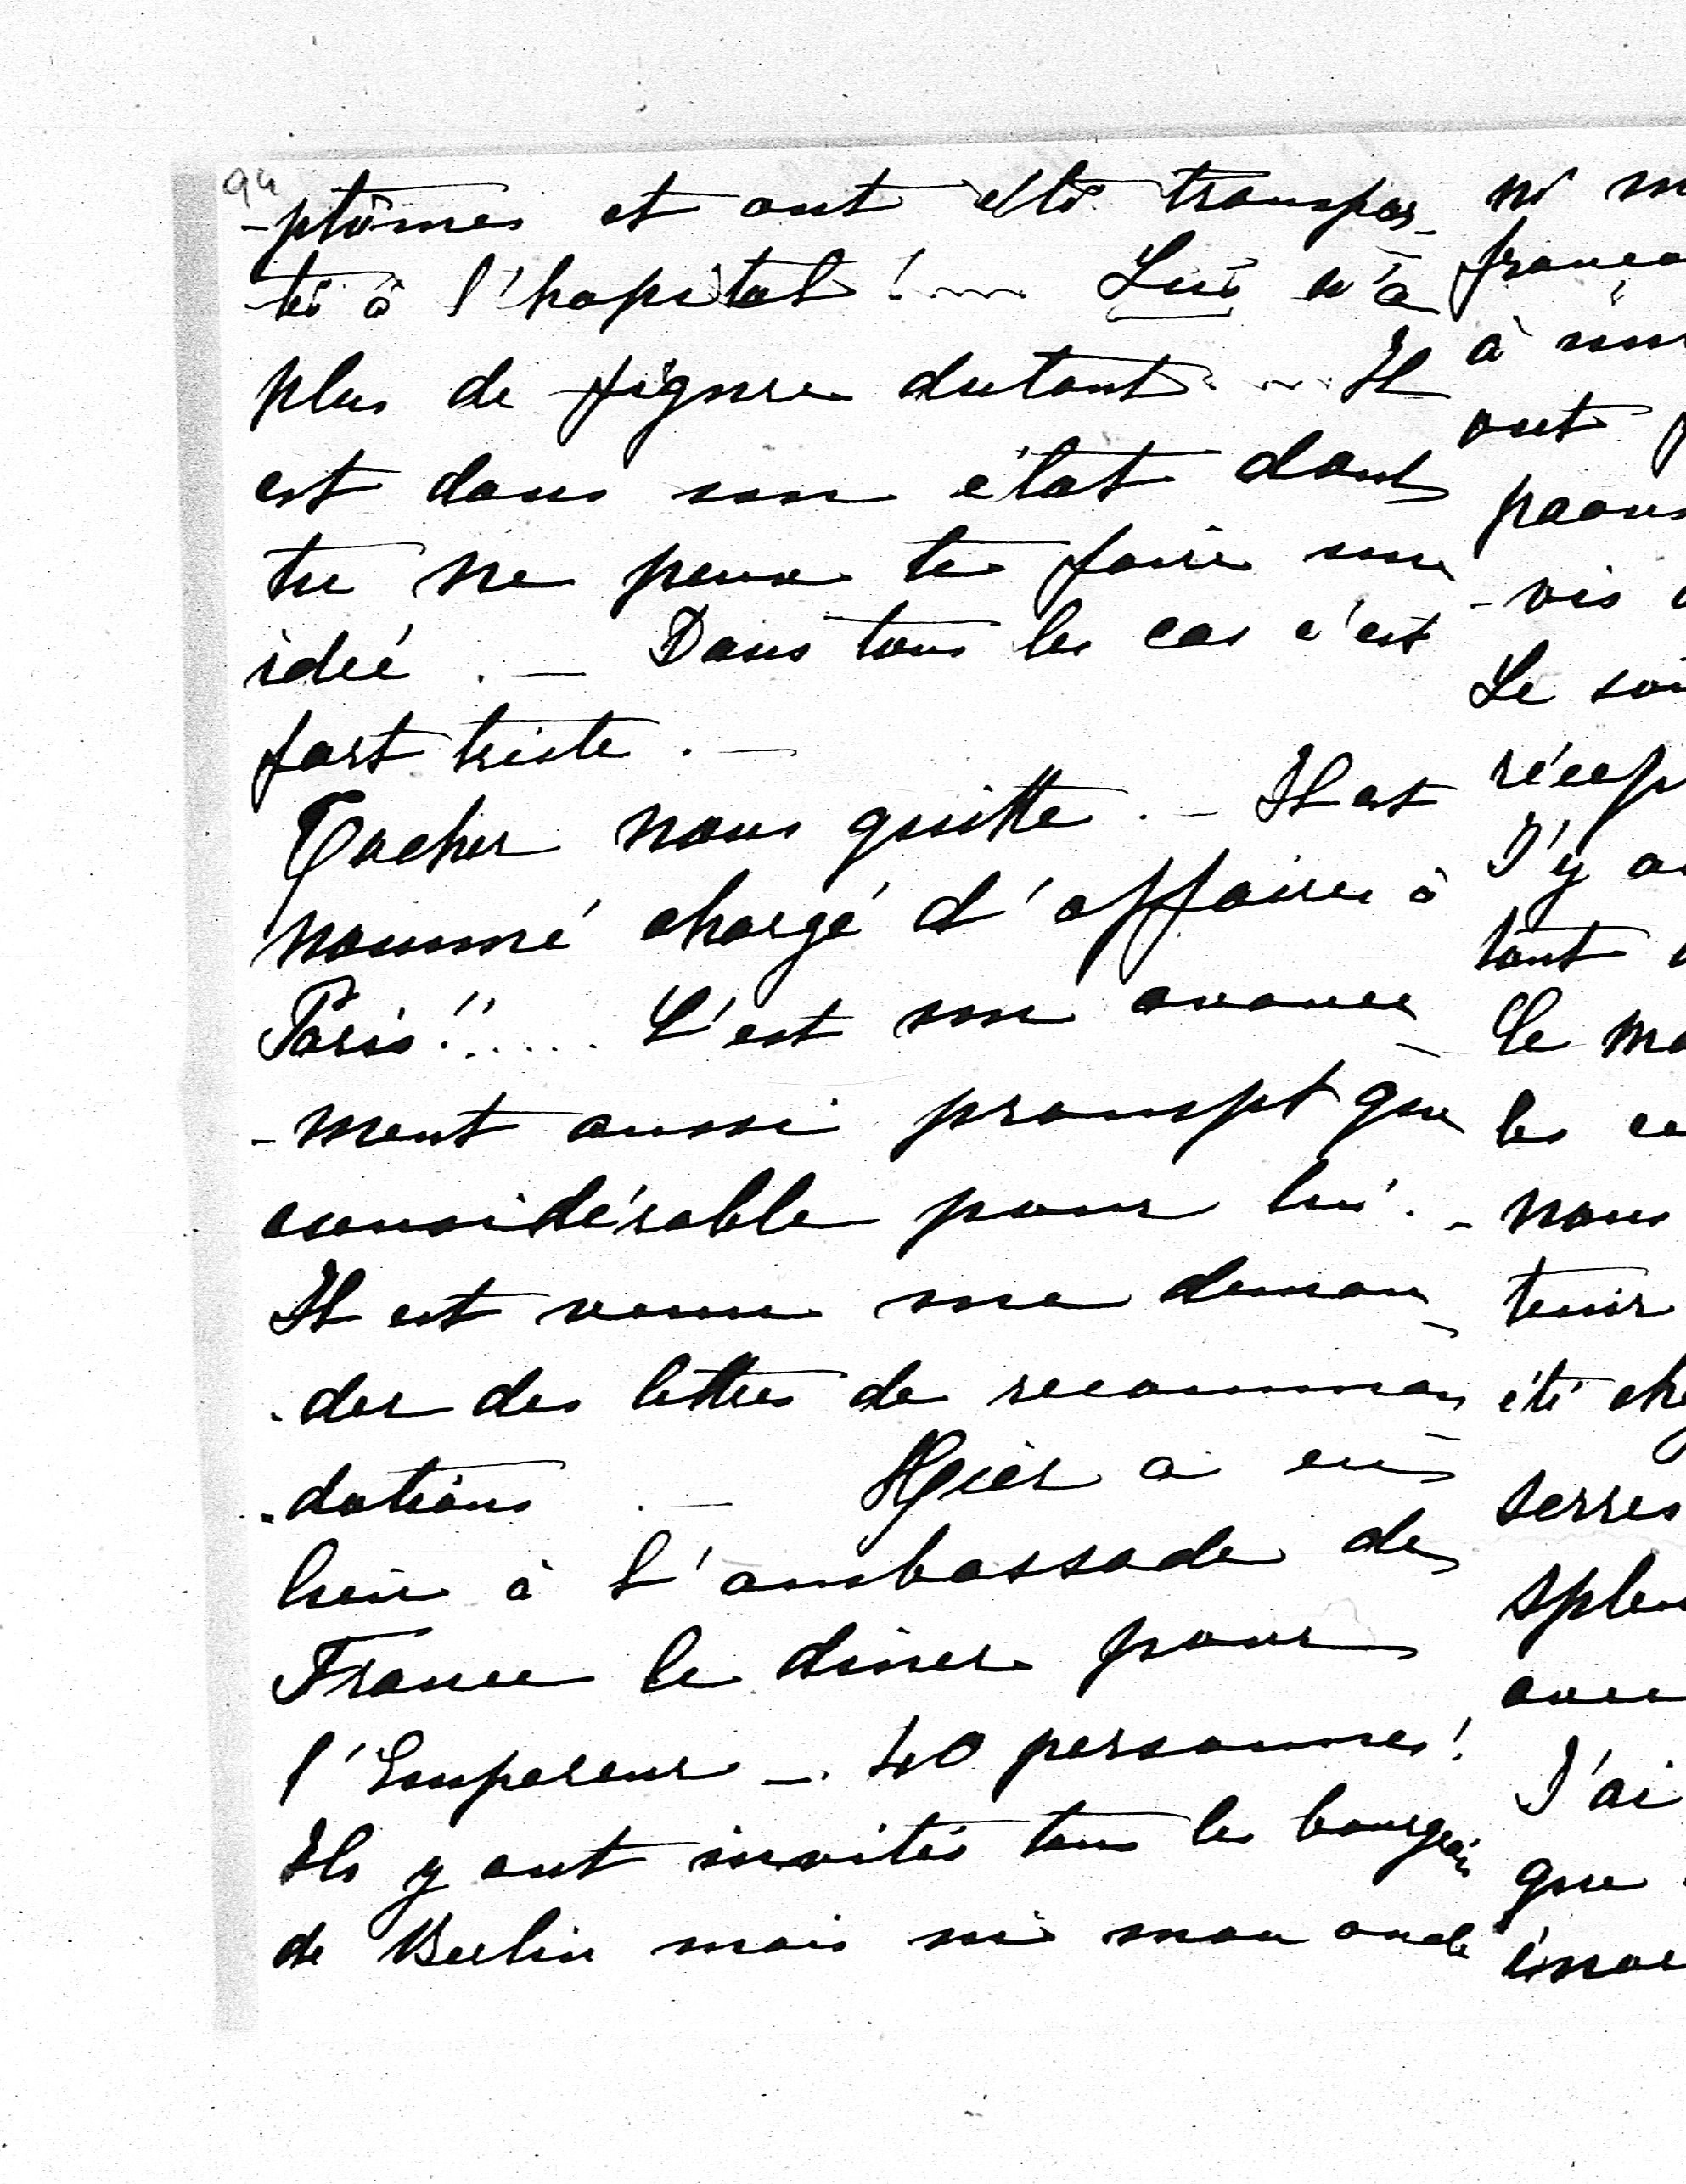 94
-ptômes et ont été transpor-
té à l'hopital !... Lui n'a
plus de figure dutout ... Il
est dans un état dont
tu ne peux te faire une
idée . — Dans tous les cas c'est
fort triste . —
Tacher nous quitte . — Il est
nommé chargé d'affaires à
Paris !! ..... C'est un avance-
-ment aussi prompt que
considérable pour lui . -
Il est venu me deman-
-der des lettres de recomman-
-dations . — Hier a eu
lieu à l'ambassade de
France le diner pour
l'Empereur — 40 personnes !
Ils y ont invités tous les bourgeois
de Berlin mais ni mon oncle
ni
à
ont
-vis
Le
J'y
tant
le
les
nous
tenir
été
serres
avec
J'ai
que